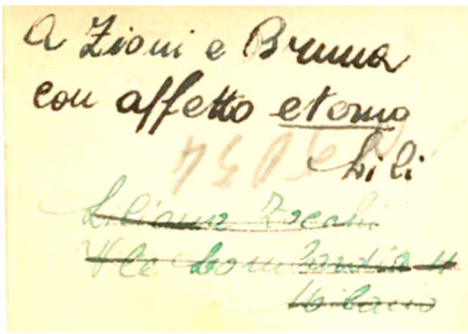 A Zioni e Bruna
con affetto eterno
Lili
Liliana Zocchi
V.le Lombardia 4
Milano